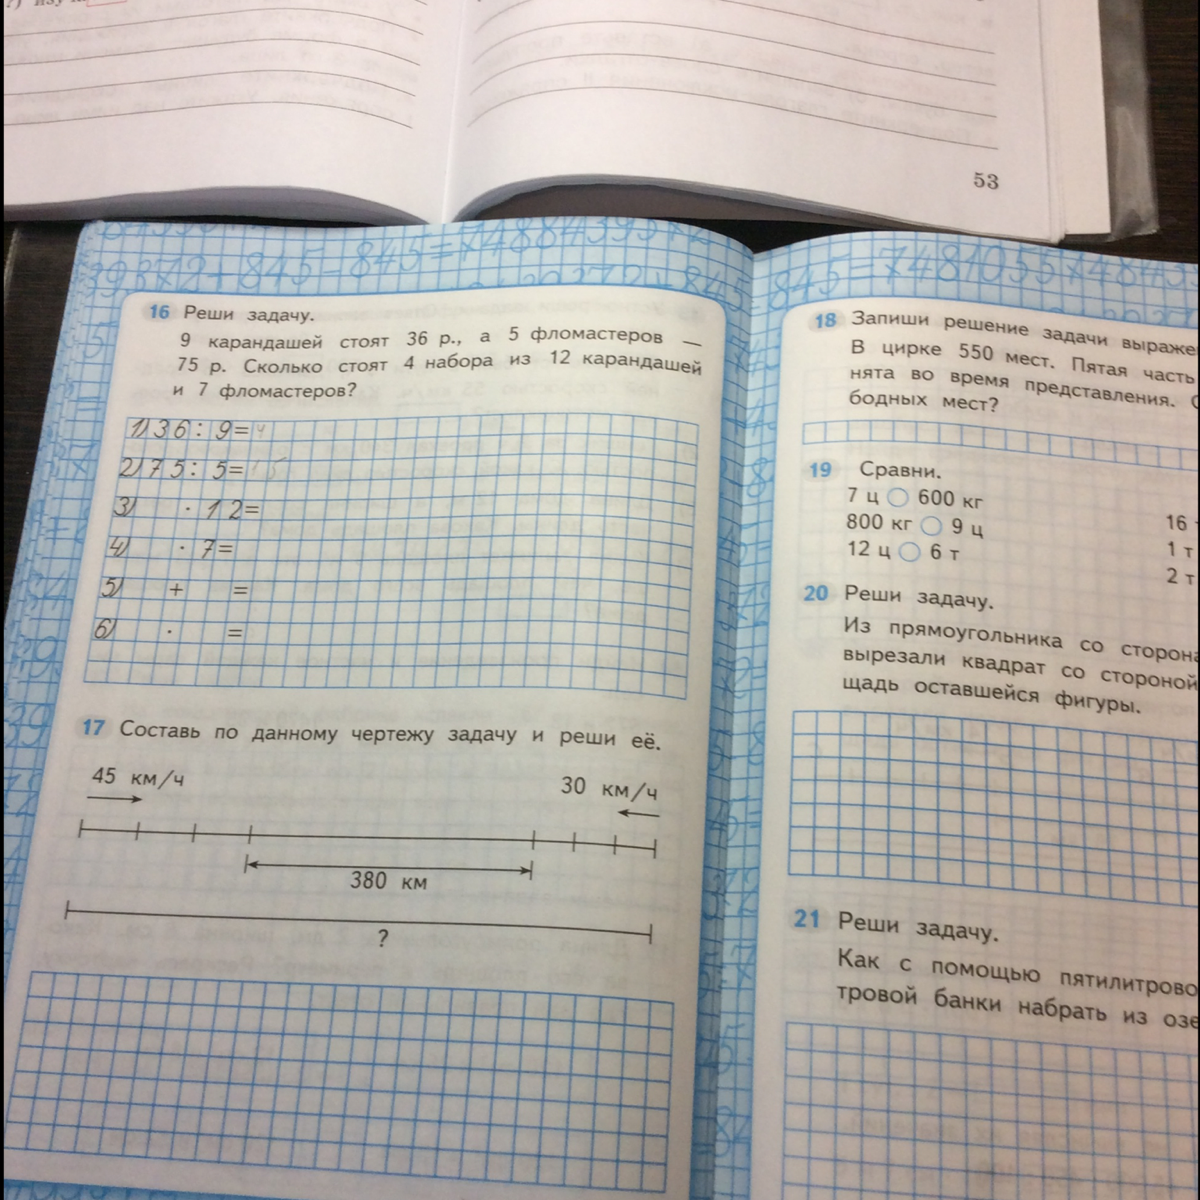 53
16 Реши задачу.
9 карандашей стоят 36 р., а 5 фломастеров —
75 р. Сколько стоят 4 набора из 12 карандашей
и 7 фломастеров?
1) 36 : 9 = 4
2) 75 : 5 = 15
3) · 12 =
4) · 7 =
5) + =
6) · =
17 Составь по данному чертежу задачу и реши её.
45 км/ч
30 км/ч
380 км
?
18 Запиши решение задачи выраже
В цирке 550 мест. Пятая часть
нята во время представления. С
бодных мест?
19 Сравни.
7 ц ◯ 600 кг
800 кг ◯ 9 ц
16
12 ц ◯ 6 т
1 т
2 т
20 Реши задачу.
Из прямоугольника со сторона
вырезали квадрат со стороной
щадь оставшейся фигуры.
21 Реши задачу.
Как с помощью пятилитрово
тровой банки набрать из озе